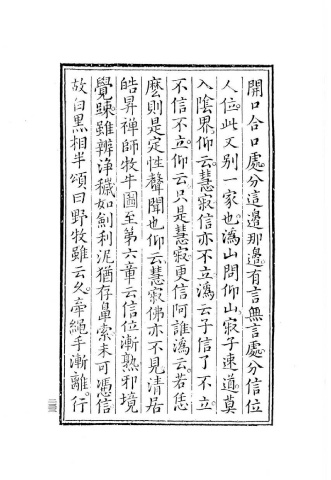 開口合口處分這邊那邊有言無言處分信位
人位此又别一家也溈山問仰山寂子速道莫
入陰界仰云慧寂信亦不立溈云子信了不立
不信不立仰云只是慧寂更信阿誰溈云若恁
麽則是定性聲聞也仰云慧寂佛亦不見清居
皓昇禪師牧牛圖至第六章云信位漸熟邪境
覺踈雖辨淨穢如劍利泥猶存鼻索未可憑信
故白黑相半頌曰野牧雖云久牽繩手漸離行